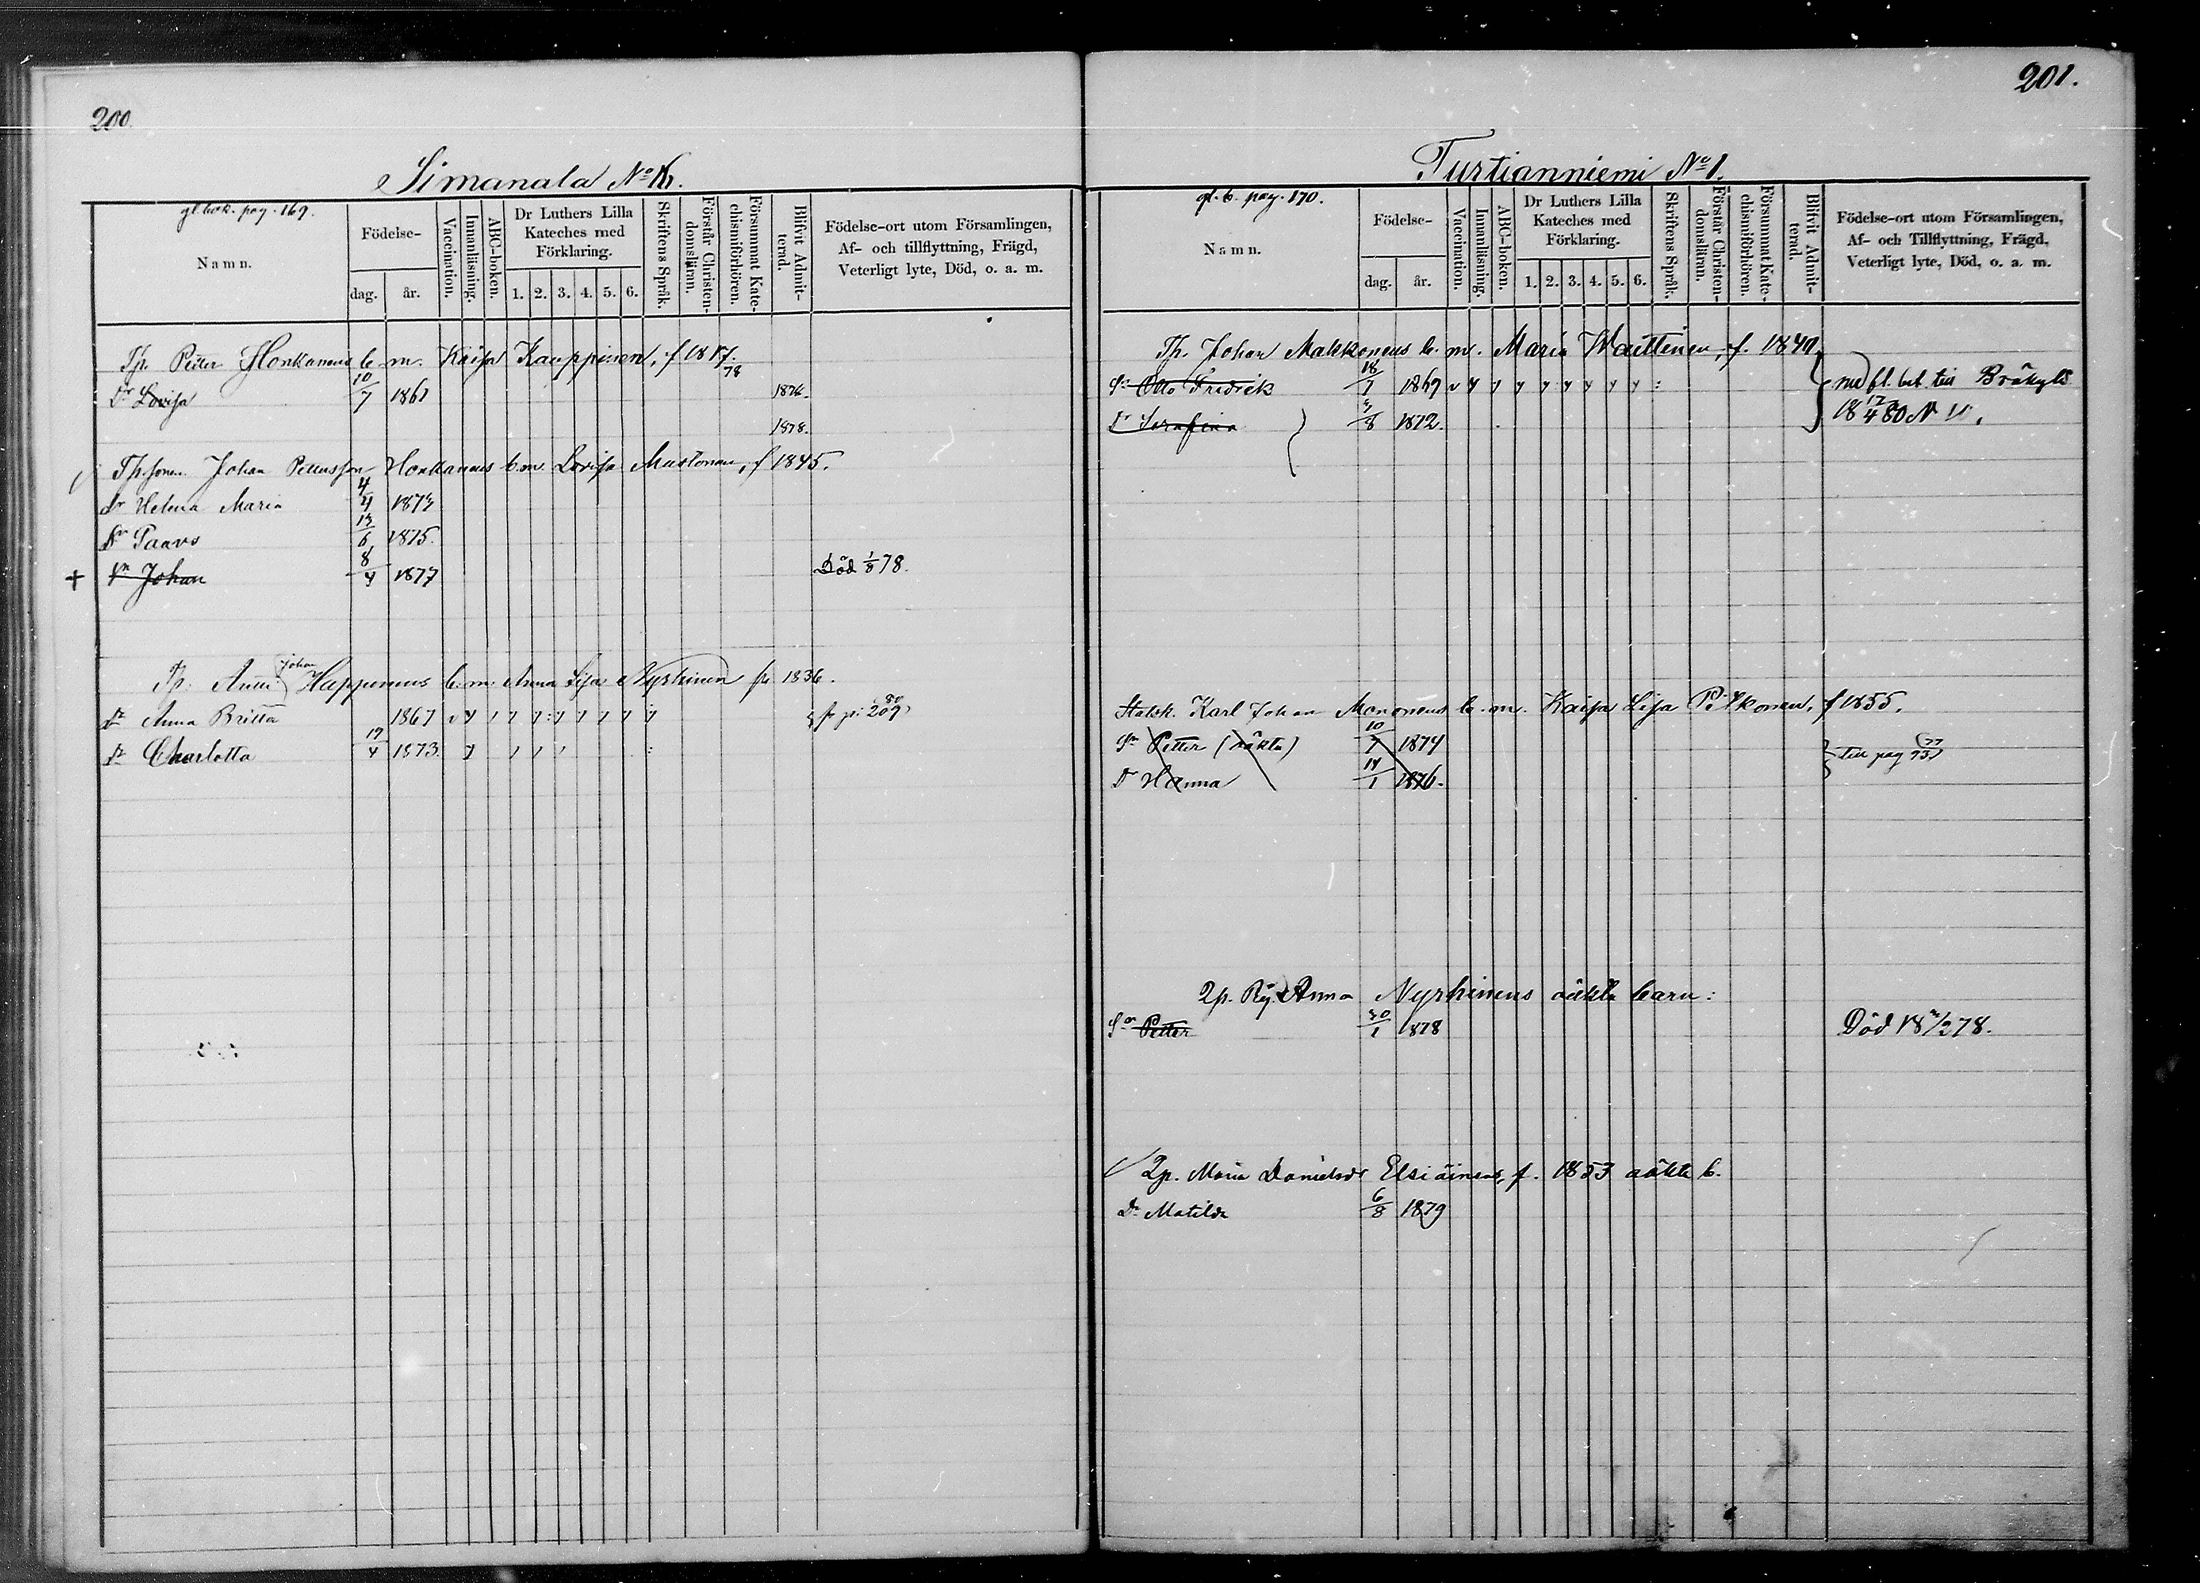 200.
Simanala No 16.
gl. bok. pag. 169.
Namn.
Födelse-
dag.
år.
Vaccination.
Innanläsning.
ABC-boken.
Dr Luthers Lilla Kateches med Förklaring.
1. 2. 3. 4. 5. 6.
Skriftens Språk.
Förstår Christendomsläran.
Försummat Katechismiförhören.
Blifvit Admitterad.
Födelse-ort utom Församlingen, Af- och tillflyttning, Frägd, Veterligt lyte, Död, o. a. m.
Tp. Petter Honkanens b. m. Kaisa Kauppinen, f 1817.
Dr Lovisa 10/7 1861
1878.
Tp.sonen Johan Petersson Honkanens b. m. Lovisa Mustonen, f 1845.
Dr Helena Maria 4/4 1873
Sn Paavo 13/6 1875.
+ Sn Johan 8/4 1877 Död 1/8 78.
Tp. Johan Happonens b. m. Anna Lisa Nyrhinen f. 1836.
Dr Anna Britta 1867 fr p: 209
Dr Charlotta 19/4 1873.
201.
Turtianniemi No 1.
gl. b. pag. 170.
Namn.
Födelse-
dag.
år.
Vaccination.
Innanläsning.
ABC-boken.
Dr Luthers Lilla Kateches med Förklaring.
1. 2. 3. 4. 5. 6.
Skriftens Språk.
Förstår Christendomsläran.
Försummat Katechismiförhören.
Blifvit Admitterad.
Födelse-ort utom Församlingen, Af- och Tillflyttning, Frägd, Veterligt lyte, Död, o. a. m.
Tp. Johan Makkonens b. m. Maria Waittinen, f. 1840
Sn Otto Fredrik 18/1 1869 med fl. bet till Bräkylä
Dr Serafina 8 1872. 18 17/4 80 N
Statk. Karl Johan Mononens b. m. Kaisa Lisa Pitkonen, f 1855.
Sn Petter (oäkta) 10/7 1874
Dr Hanna 14/1 1876. till pag
Anna Nyrhinens oäkta barn:
Sn Petter 30/1 1878 Död 18 /2 78.
Maria Danielsdr Elsiäinens, f. 1853 oäkta b.
Dr Matilda 6/8 1879